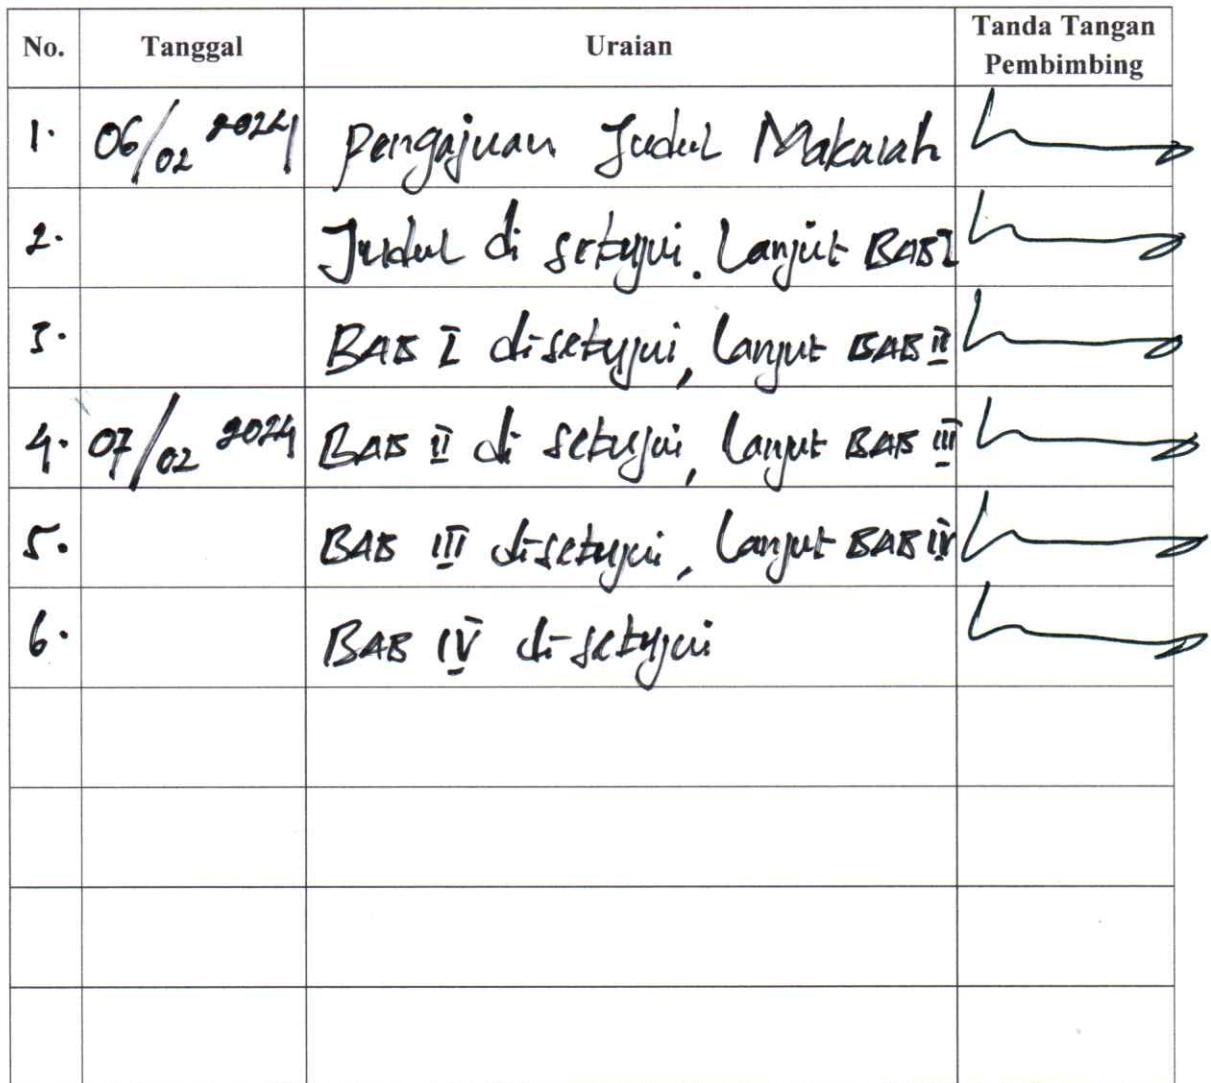 No. Tanggal Uraian Tanda Tangan Pembimbing
1. 06/02 2024 Pengajuan Judul Makalah
2. Judul di setujui. Lanjut BAB I
3. BAB I disetujui, Lanjut BAB II
4. 07/02 2024 BAB II di setujui, Lanjut BAB III
5. BAB III disetujui, Lanjut BAB IV
6. BAB IV disetujui